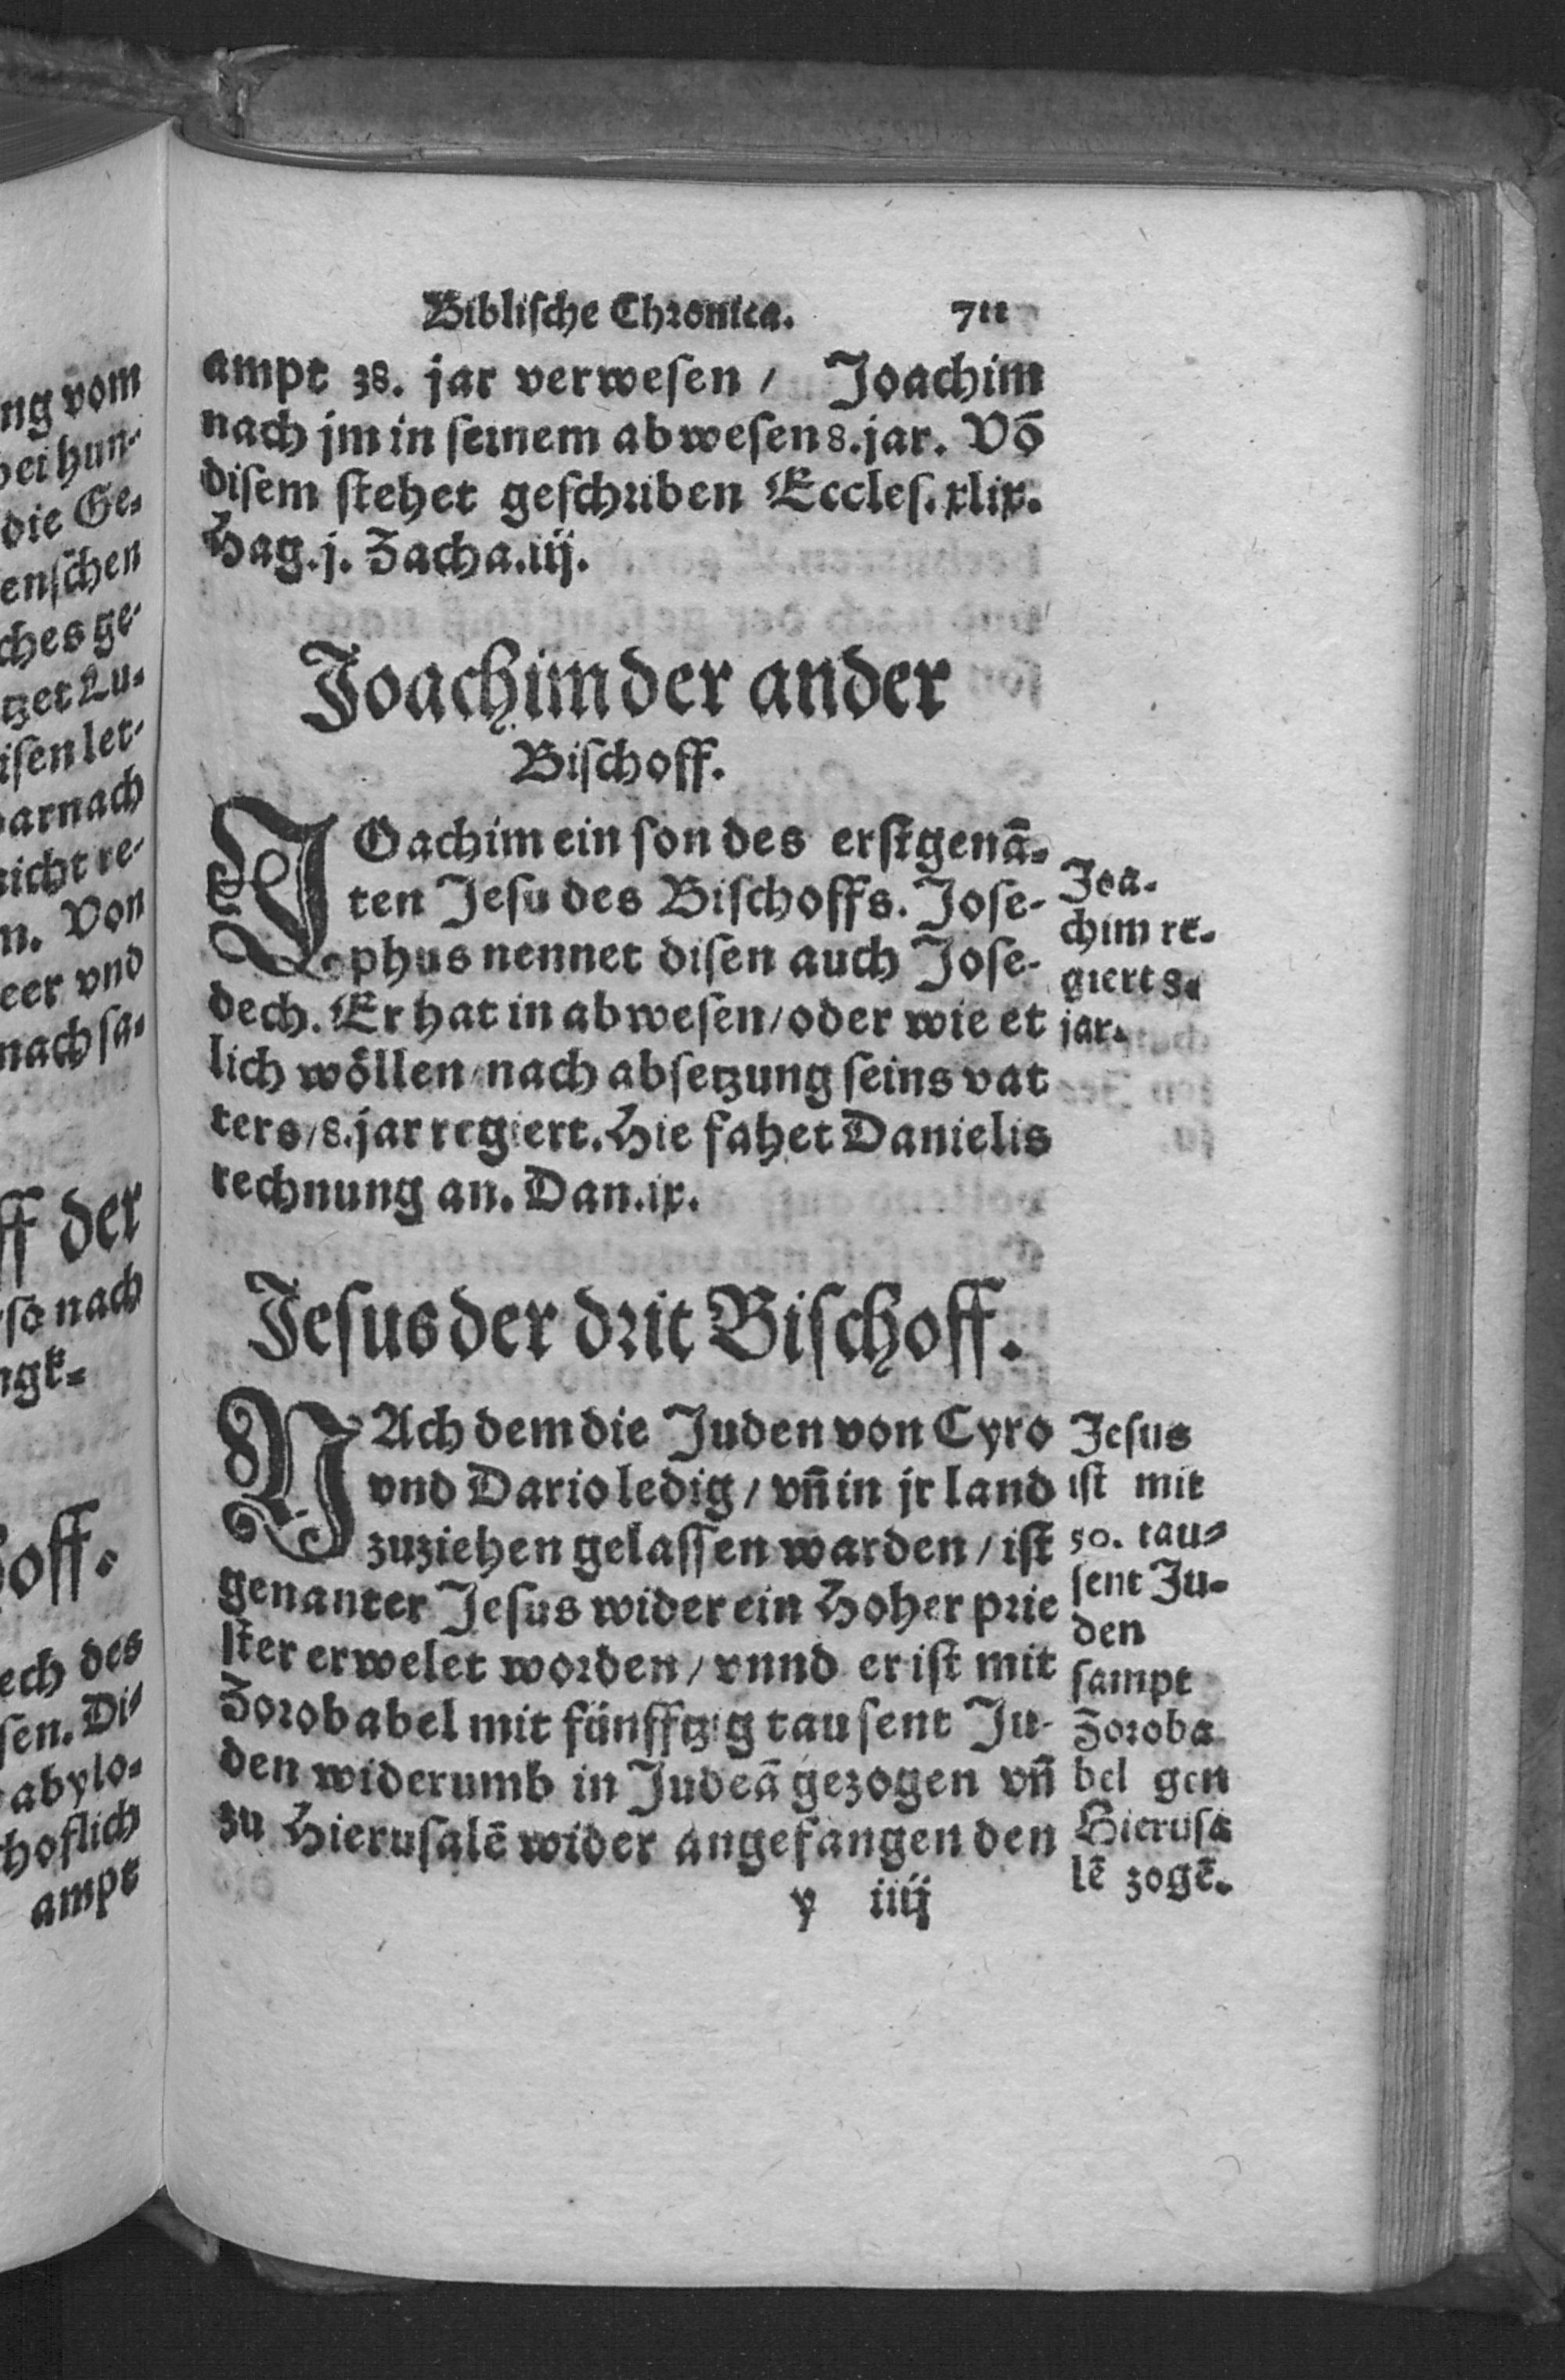 ng vom
bei hun-
die Ge-
enſchen
ches ge-
tzet Lu-
iſen let-
darnach
nicht re-
n. Von
eer vnd
nach ſa-
ff der
ſo nach
ngk-
hoff.
ech des
ſen. Di-
abylo-
choflich
ampt
Bibliſche Chronica.
ampt 38. jar verweſen / Joachim
nach jm in ſeinem abweſen 8. jar. Võ
diſem ſtehet geſchriben Eccleſ. xlix.
Hag. j. Zacha. iij.
Joachim der ander
Biſchoff.
JOachim ein ſon des erſtgenã-
ten Jeſu des Biſchoffs. Joſe-
phus nennet diſen auch Joſe-
dech. Er hat in abweſen / oder wie et
lich wöllen / nach abſetzung ſeins vat
ters / 8. jar regiert. Hie fahet Danielis
rechnung an. Dan. ix.
Joa-
chim re-
giert 8.
jar.
Jeſus der drit Biſchoff.
NAch dem die Juden von Cyro
vnd Dario ledig / vñ in jr land
zuziehen gelaſſen warden / iſt
genanter Jeſus wider ein Hoher prie
ſter erwelet worden / vnnd er iſt mit
Zorobabel mit fünfftzig tauſent Ju-
den widerumb in Judeã gezogen vñ
zu Hieruſalẽ wider angefangen den
Jeſus
iſt mit
50. tau-
ſent Ju-
den
ſampt
Zoroba
bel gen
Hieruſa
lẽ zogẽ.
y iiij